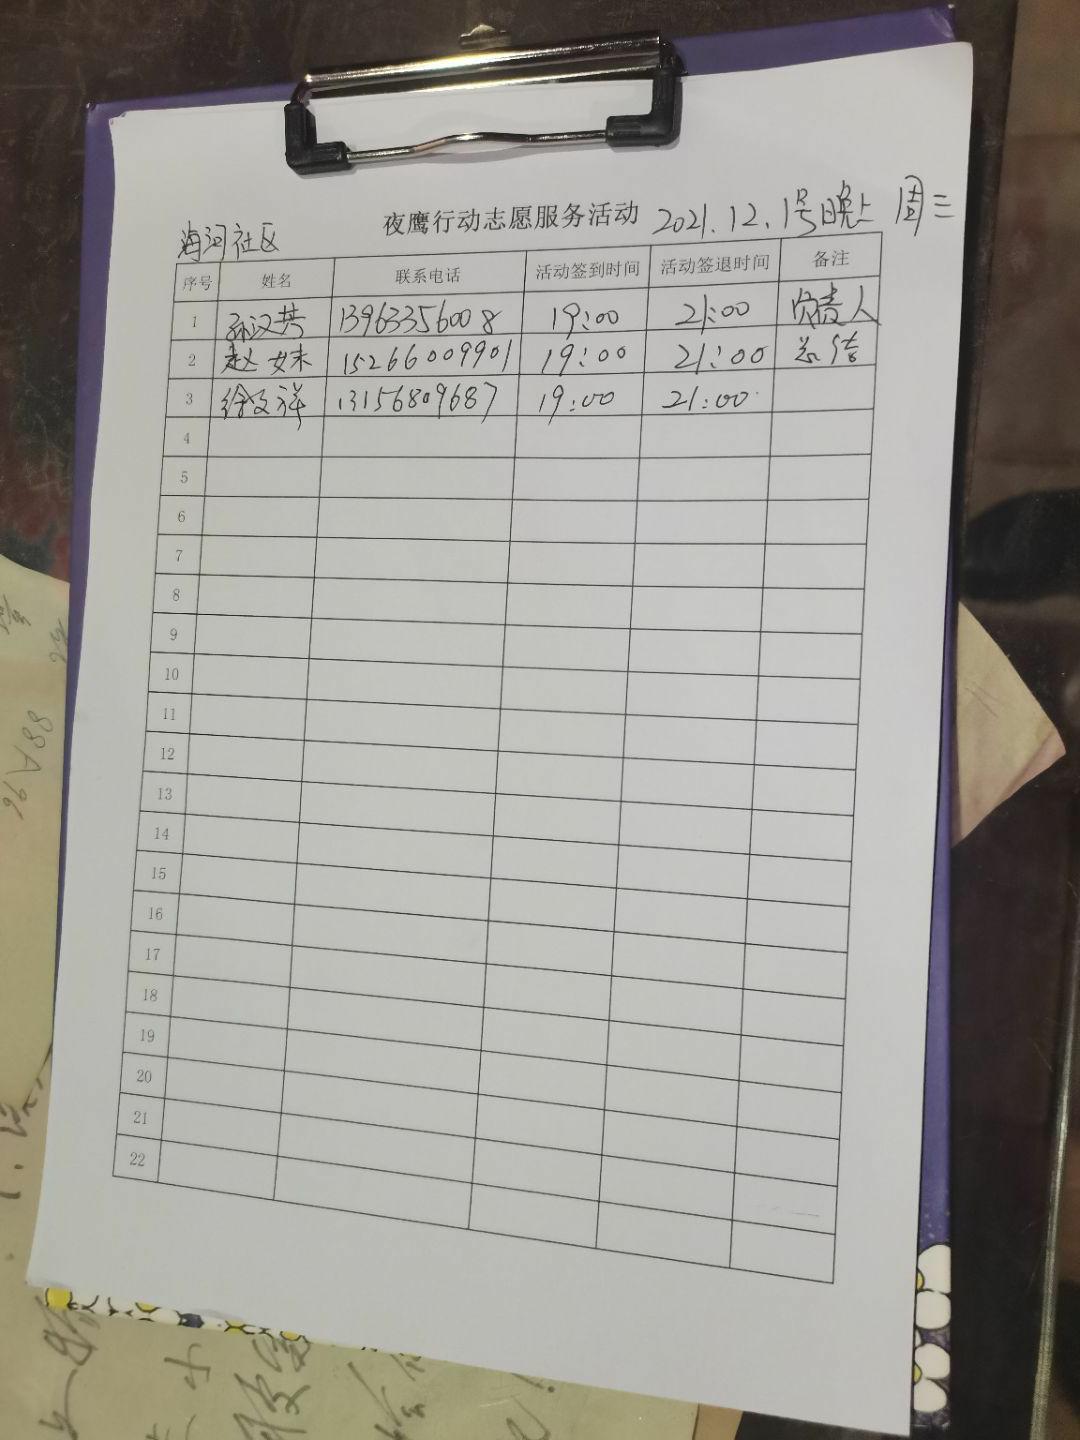 夜鹰行动志愿服务活动 2021.12.1号晚上 周三
海河社区
序号 姓名 联系电话 活动签到时间 活动签退时间 备注
1 孙汉共 13963356008 19:00 21:00 负责人
2 赵妹 15266009901 19:00 21:00 总结
3 徐文祥 13156809687 19:00 21:00
4
5
6
7
8
9
10
11
12
13
14
15
16
17
18
19
20
21
22